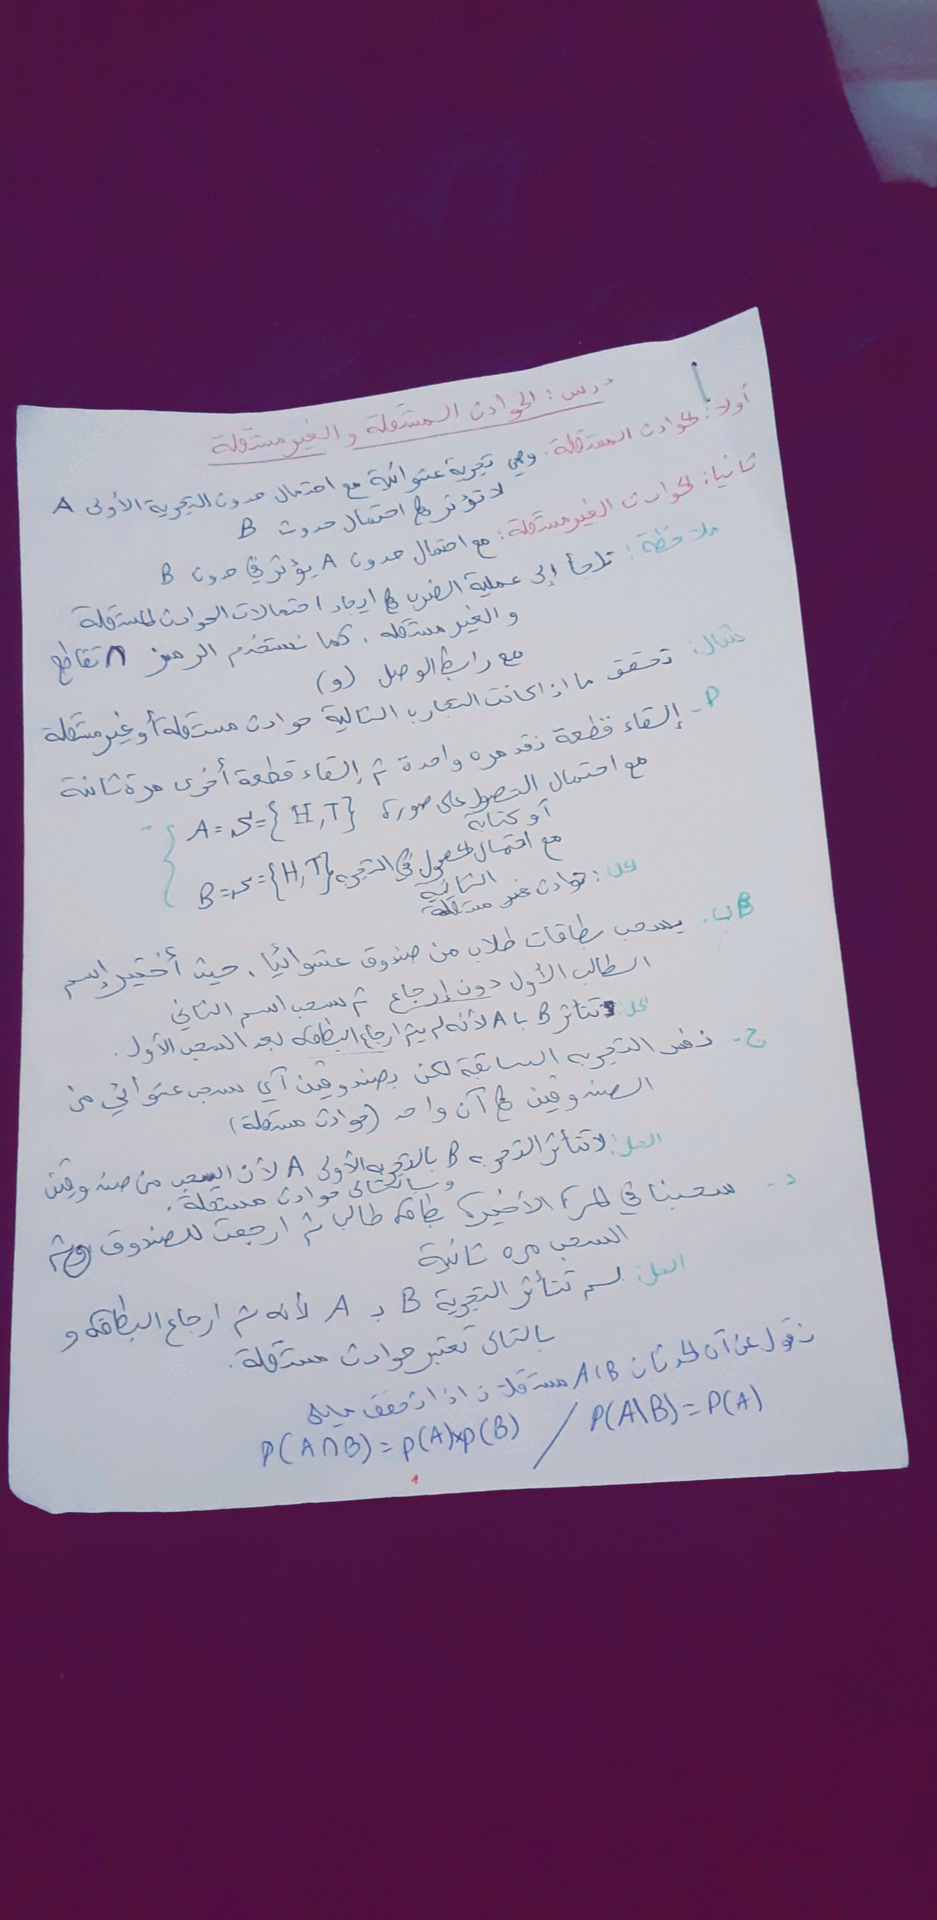 درس: الحوادث المستقلة والغير مستقلة
أولا: الحوادث المستقلة: وهي تجربة عشوائية مع احتمال حدوث التجربة الأولى A
لا تؤثر في احتمال حدوث B
ثانيا: الحوادث الغير مستقلة: مع احتمال حدوث A يؤثر في حدوث B
ملاحظة: نلجأ إلى عملية الضرب في ايجاد احتمالات الحوادث المستقلة
والغير مستقله، كما نستخدم الرمز ∩ تقاطع
مع رابط الوصل (و)
مثال: تحقق ما اذا كانت التجارب التالية حوادث مستقلة أو غير مستقلة
أ- إلقاء قطعة نقد مره واحدة ثم إلقاء قطعة أخرى مرة ثانية
مع احتمال الحصول على صورة A = S = {H, T}
أو كتابة
مع احتمال الحصول في التجربه B = S = {H, T}
الثانية
الحل: حوادث غير مستقلة
ب- يسحب بطاقات طلاب من صندوق عشوائيا، حيث أختير إسم
الطالب الأول دون إرجاع ثم سحب اسم الثاني
الحل: تتأثر B با A لأنه لم يتم ارجاع البطاقه بعد السحب الأول.
ج- نفس التجربه السابقة لكن بصندوقين آي سحب عشوائي من
الصندوقين في آن واحد (حوادث مستقلة)
الحل: لا تتأثر التجربه B بالتجربه الأولى A لأن السحب من صندوقين
وبالتالي حوادث مستقلة.
د- سحبنا في المرة الأخيرة بطاقه طالب ثم ارجعت للصندوق وتم
السحب مره ثانية
الحل: لم تتأثر التجربة B بـ A لأنه تم ارجاع البطاقه و
بالتالي تعتبر حوادث مستقلة.
نقول عن أن الحدثان A، B مستقلان اذا تحقق مايلي
P(A∩B) = P(A)×P(B) / P(A\B) = P(A)
1